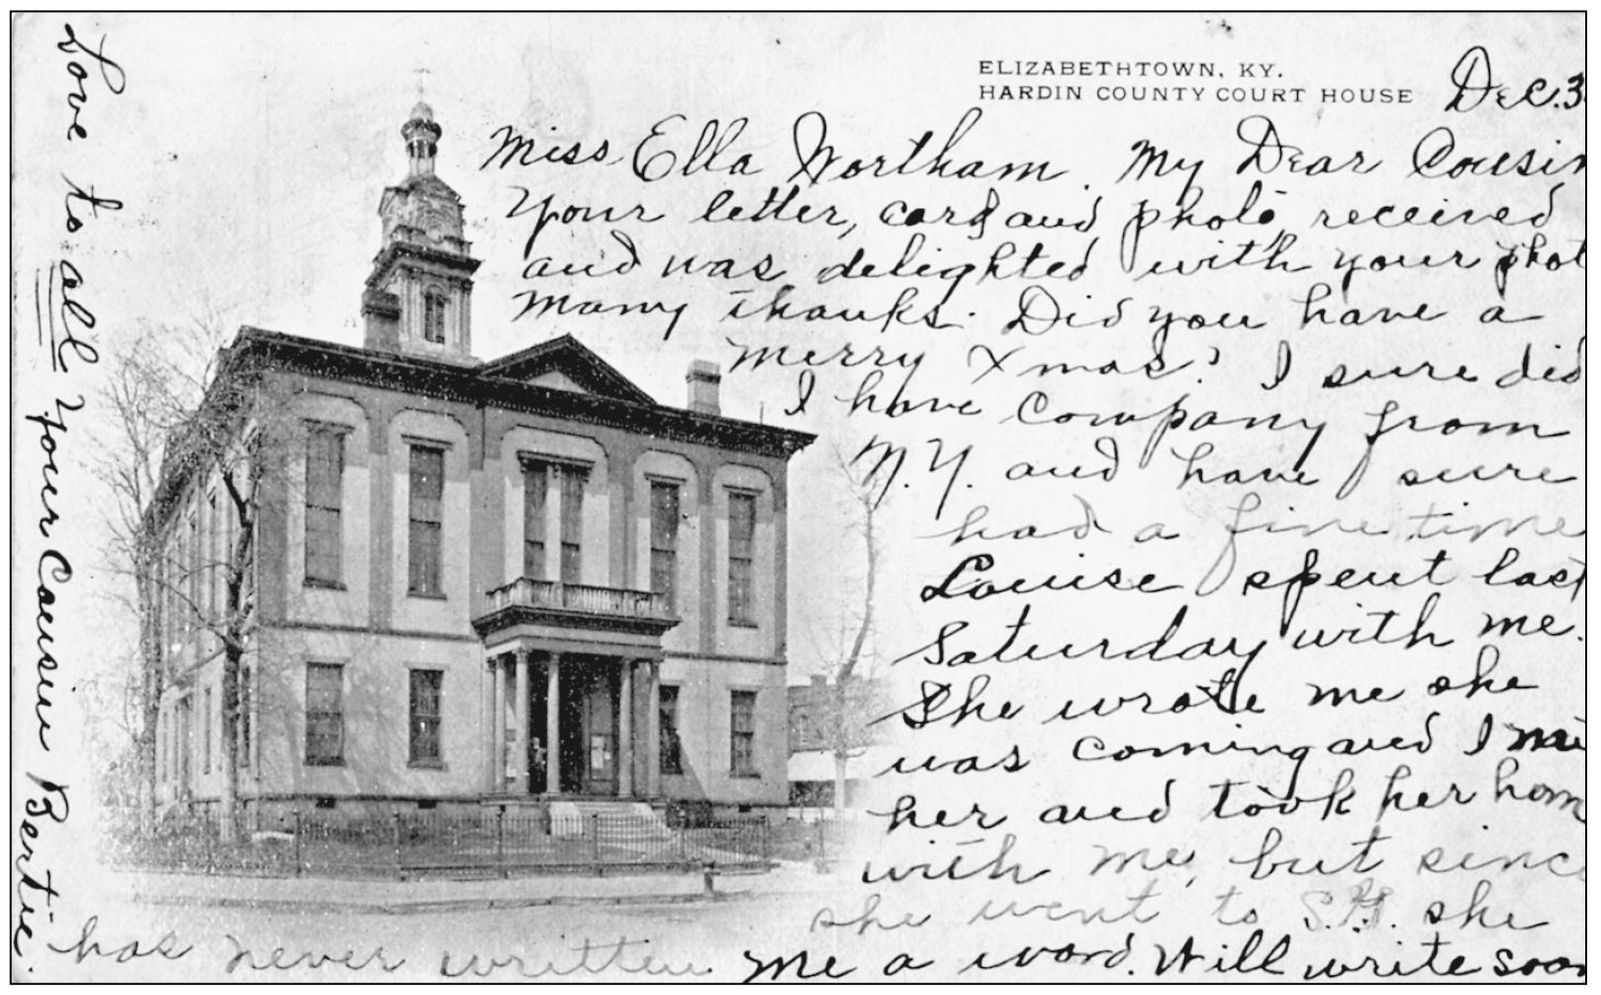 ELIZABETHTOWN, KY.
HARDIN COUNTY COURT HOUSE
Dec. 3
Miss Ella Wortham. My Dear Cousin
Your letter, card and photo received
and was delighted with your phot
many thanks. Did you have a
merry Xmas? I sure did
I have company from
N.Y. and have sure
had a fine time
Louise spent last
Saturday with me.
She wrote me she
was coming and I
her and took her hom
with me, but sinc
she went to she
has never written me a word. Will write soon
Love to all Your Cousin Bertie.